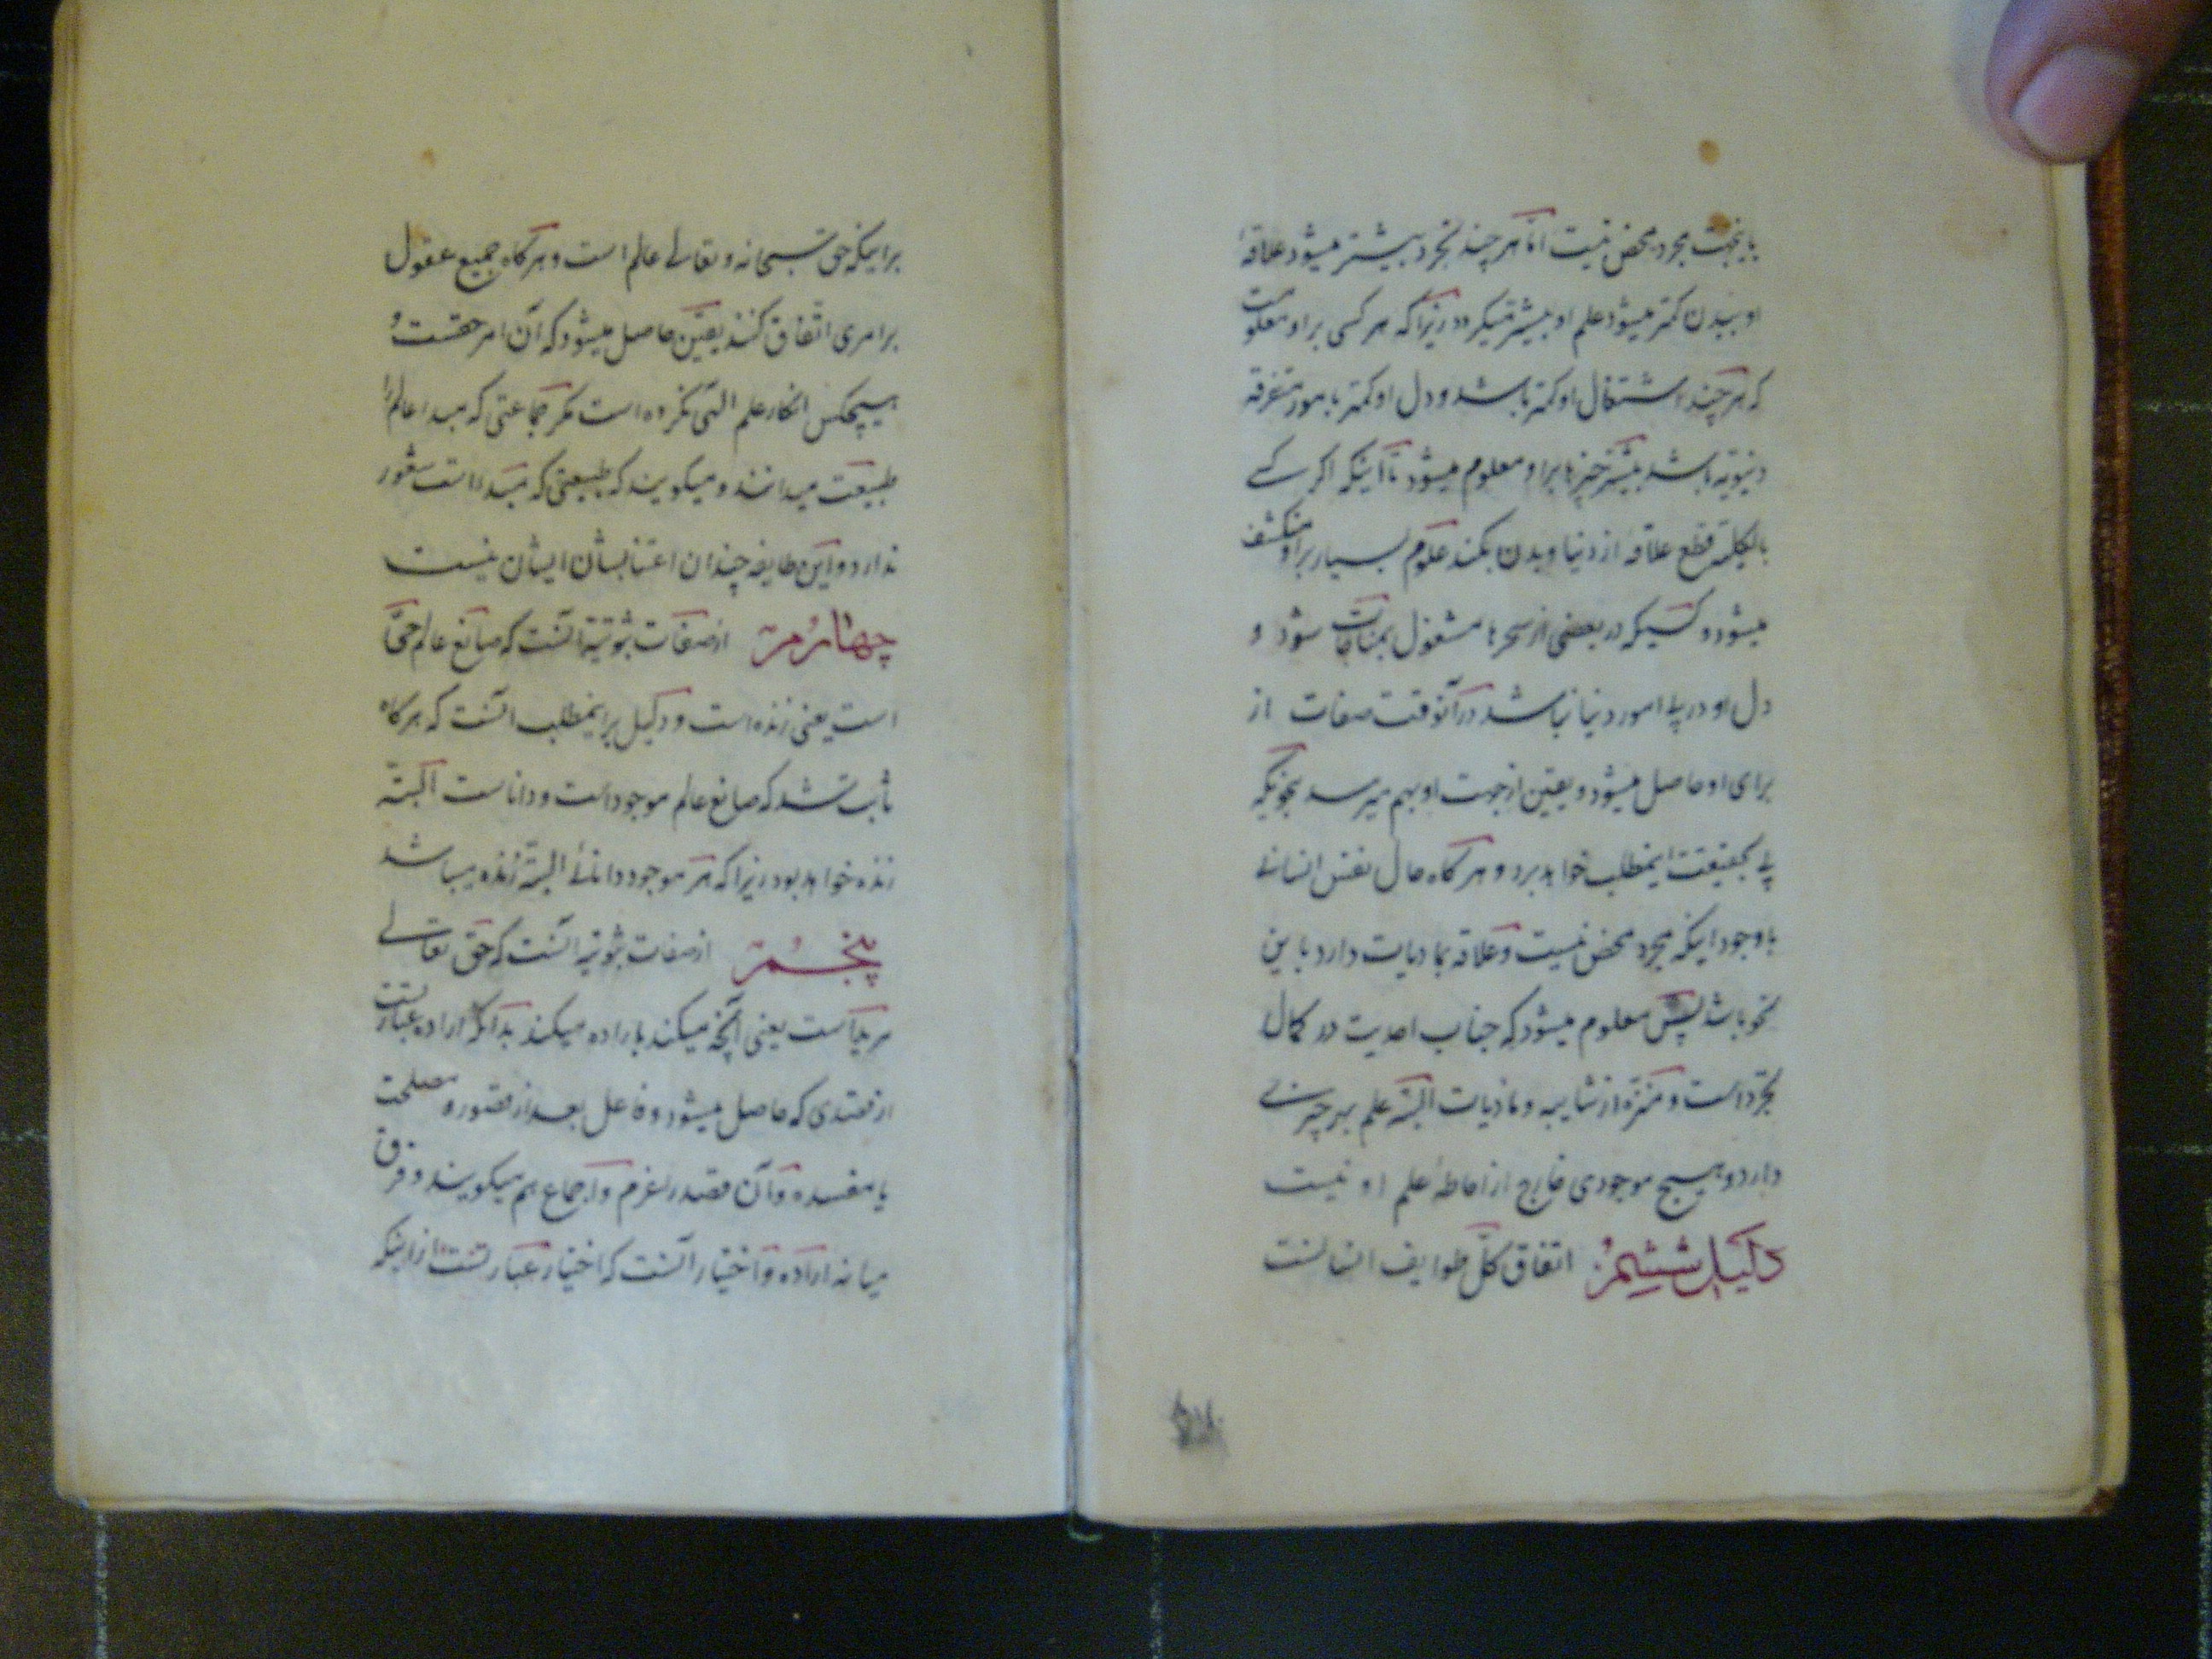 باینجهت مجرد محض نیست امّا هر چند تجرد بیشتر میشود علاقهٔ
او ببدن کمتر میشود علم او بیشتر میکردد زیرا که هر کسی بر او معلومست
که هر چند اشتغال او کمتر باشد و دل او کمتر بامور متفرقه
دنیویه باشد بیشتر چیزها بر او معلوم میشود تا اینکه اکر کسے
بالکلیّه قطع علاقه از دنیا و بدن بکند علوم بسیار بر او منکشف
میشود و کسیکه در بعضی از سحرها مشغول بمناجات شود و
دل او در پے امور دنیا نباشد در آنوقت صفات از
برای او حاصل میشود و یقین از جهت او بهم میرسد بنحویکه
پے بحقیقت اینمطلب خواهد برد و هرکاه حال نفس انسانے
با وجود اینکه مجرد محض نیست و علاقه بمادیات دارد باین
نحو باشد پس معلوم میشود که جناب احدیت در کمال
تجرّد است و منزّه از شایبه و مادیات البتّه علم بهر چیزے
دارد و هیچ موجودی خارج از احاطهٔ علم او نیست
دلیل ششم اتفاق کلّ طوایف انسانست
بر اینکه حق سبحانه و تعالے عالم است و هرکاه جمیع عقول
بر امری اتفاق کنند یقین حاصل میشود که آن امر حقست و
هیچکس انکار علم الهی نکرده است مکر جماعتی که مبدا عالم را
طبیعت میدانند و میکویند که طبیعتی که مبداء است شعور
ندارد و این طایفه چندان اعتنا بشان ایشان نیست
چهارم از صفات ثبوتیّه آنست که صانع عالم حیّ
است یعنی زنده است و دلیل بر اینمطلب آنست که هرکاه
ثابت شد که صانع عالم موجود است و داناست البتّه
زنده خواهد بود زیرا که هر موجود دانائے البتّه زنده میباشد
پنجم از صفات ثبوتیه آنست که حق تعالے
مرید است یعنی آنچه میکند باراده میکند بدانکه اراده عبارتست
از قصدی که حاصل میشود و فاعل بعد از تصوره مصلحت
یا مفسده و آن قصد را عزم و اجماع هم میکویند و فرق
میانه اراده و اختیار آنست که اختیار عبارتست از اینکه